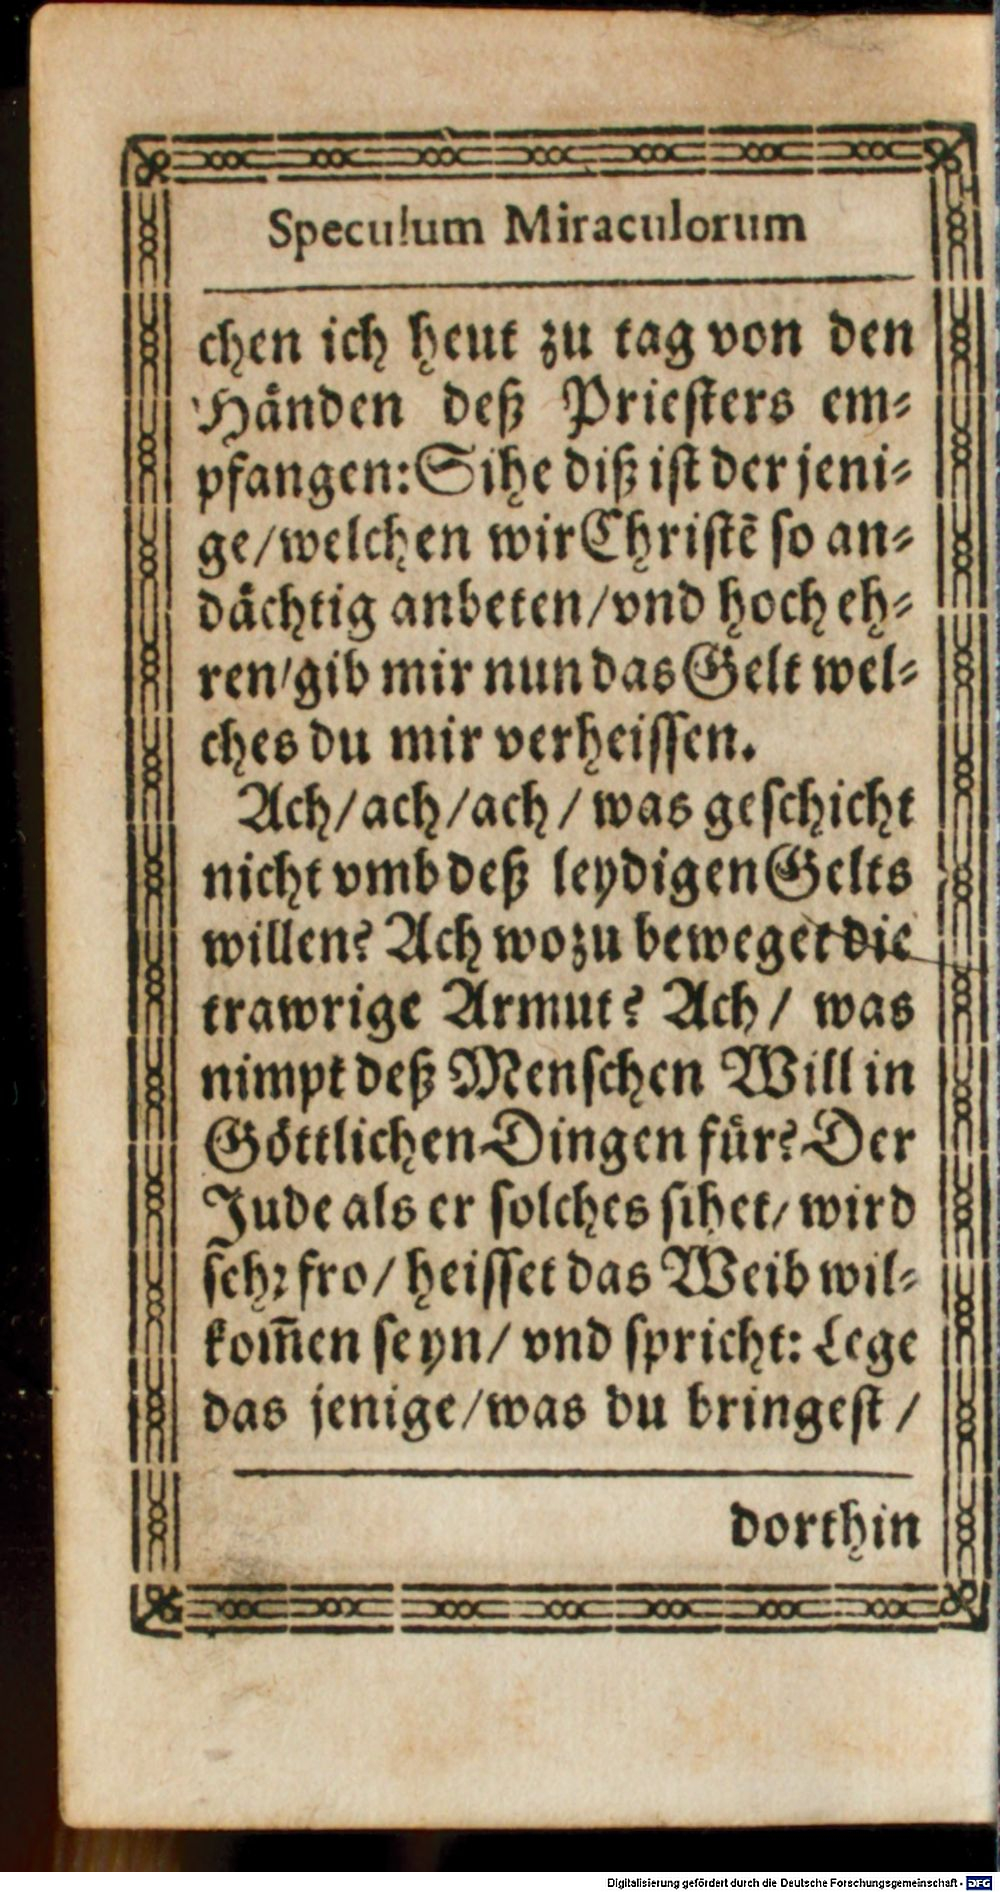 Speculum Miraculorum
chen ich heut zu tag von den
Händen deß Priesters em-
pfangen: Sihe diß ist der jeni-
ge/welchen wir Christē so an-
dächtig anbeten/vnd hoch eh-
ren/gib mir nun das Gelt wel-
ches du mir verheissen.
Ach/ach/ach/ was geschicht
nicht vmb deß leydigen Gelts
willen? Ach wozu beweget die
trawrige Armut? Ach/ was
nimpt deß Menschen Will in
Göttlichen Dingen für? Der
Jude als er solches sihet/ wird
sehr fro/ heisset das Weib wil-
kom̄en seyn/ vnd spricht: Lege
das jenige/was du bringest/
dorthin
Digitalisierung gefördert durch die Deutsche Forschungsgemeinschaft - DFG